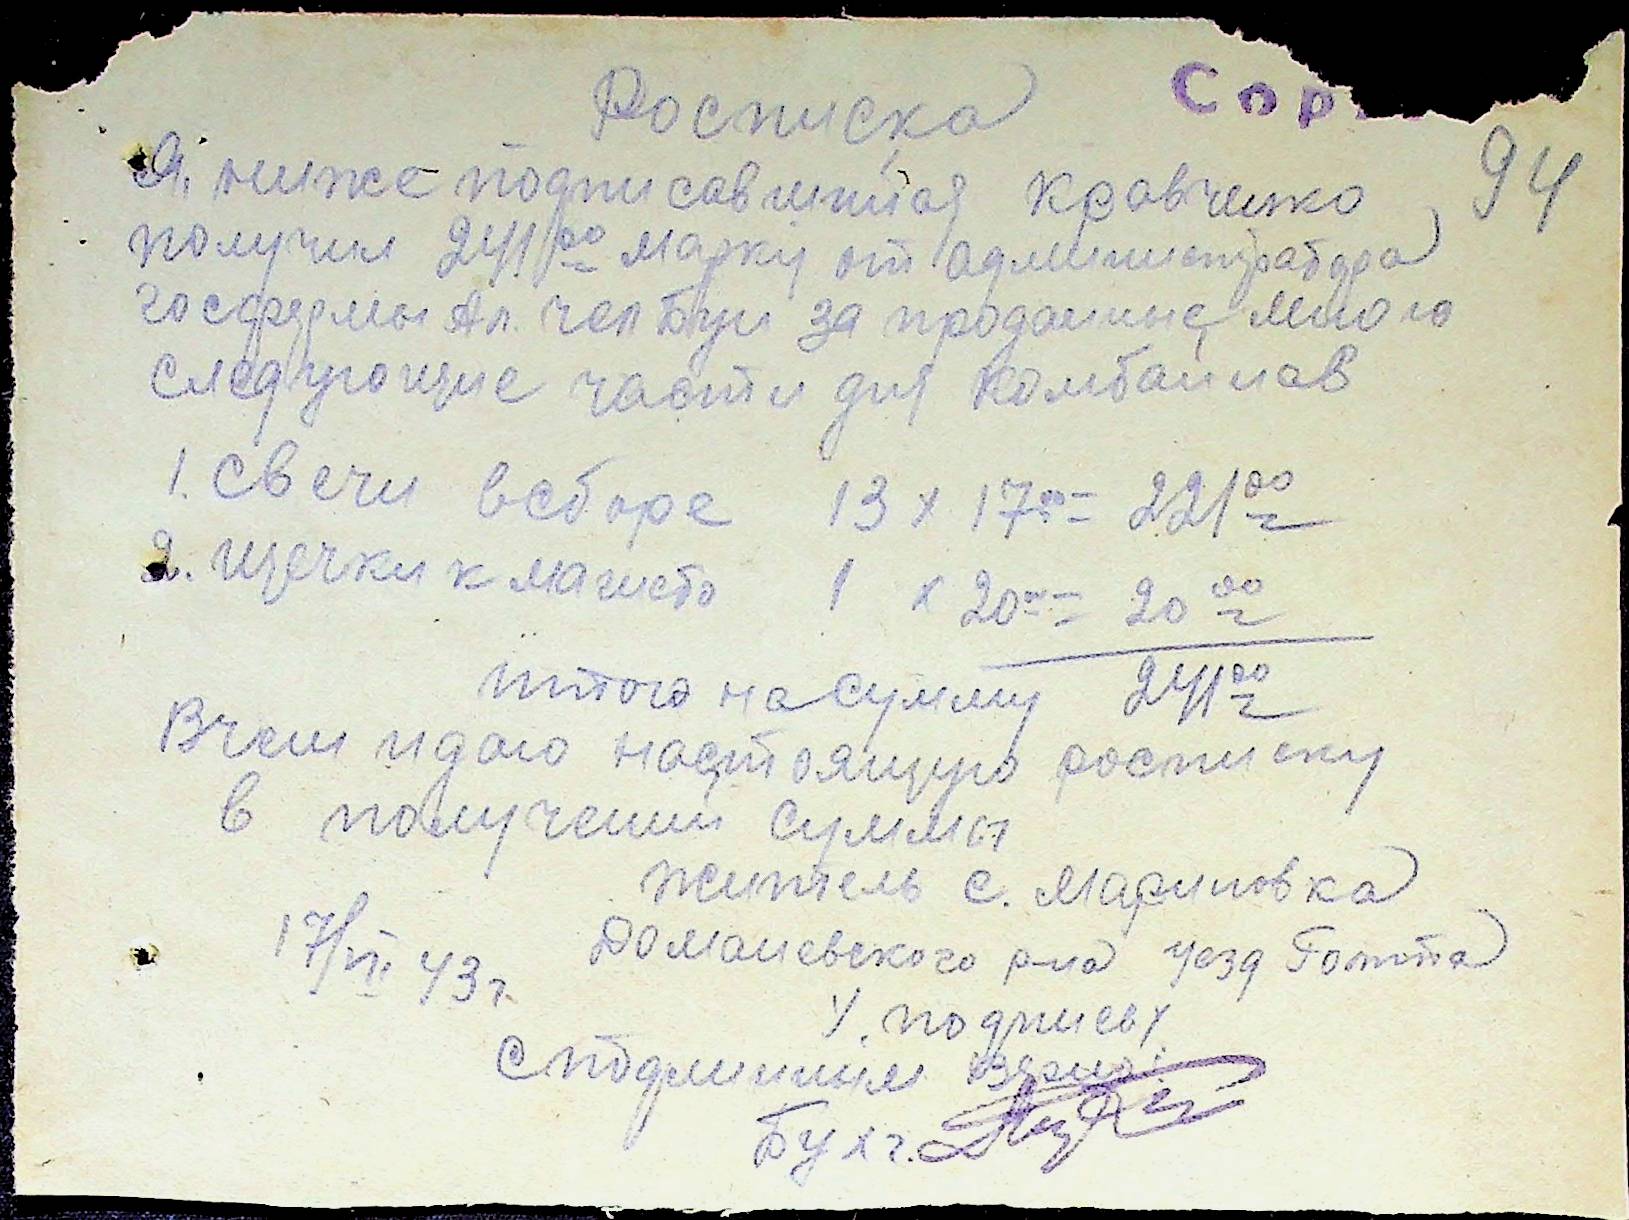 Росписка
Сор
94
Я, ниже подписавшийся Кравченко
получил 241,00 марки от администратора
госфермы Ал. чел Буи за проданные мною
следующие части для комбайнов
1. Свечи всборе 13 х 17.00 = 221 00
2. Щечки к магнето 1 х 20 00 = 20 00
Итого на сумму 241 00
В чем и даю настоящую росписку
в получении суммы
житель с. Мариновка
Доманевского р-на уезд Голта
17/VI 43 г.
У. подпись
С подлинным верно:
Бухг.